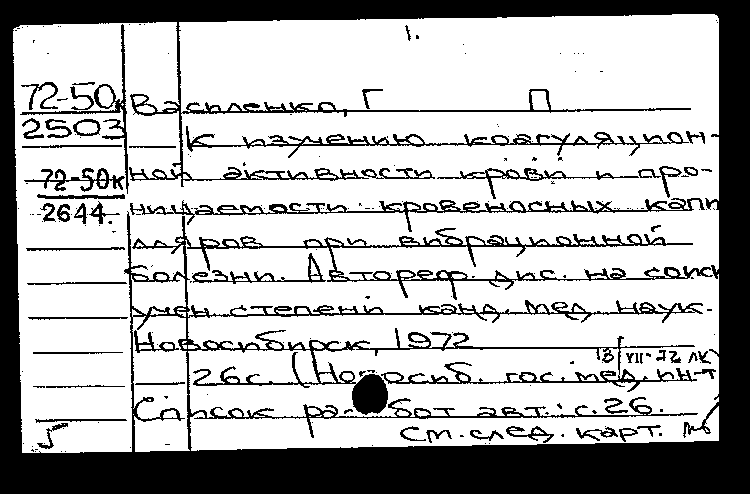 1.
72-50к Василенко, Г П
2503 К изучению коагуляцион-
72-50к ной активности крови и про-
2644. ницаемости кровеносных капи
лляров при вибрационной
болезни. Автореф. дис. на соиск
учен степени канд. мед. наук.
Новосибирск, 1972
13/VII-72 ЛК
26с. (Новосиб. гос. мед. ин-т
Список работ авт.: с. 26.
см. след. карт.